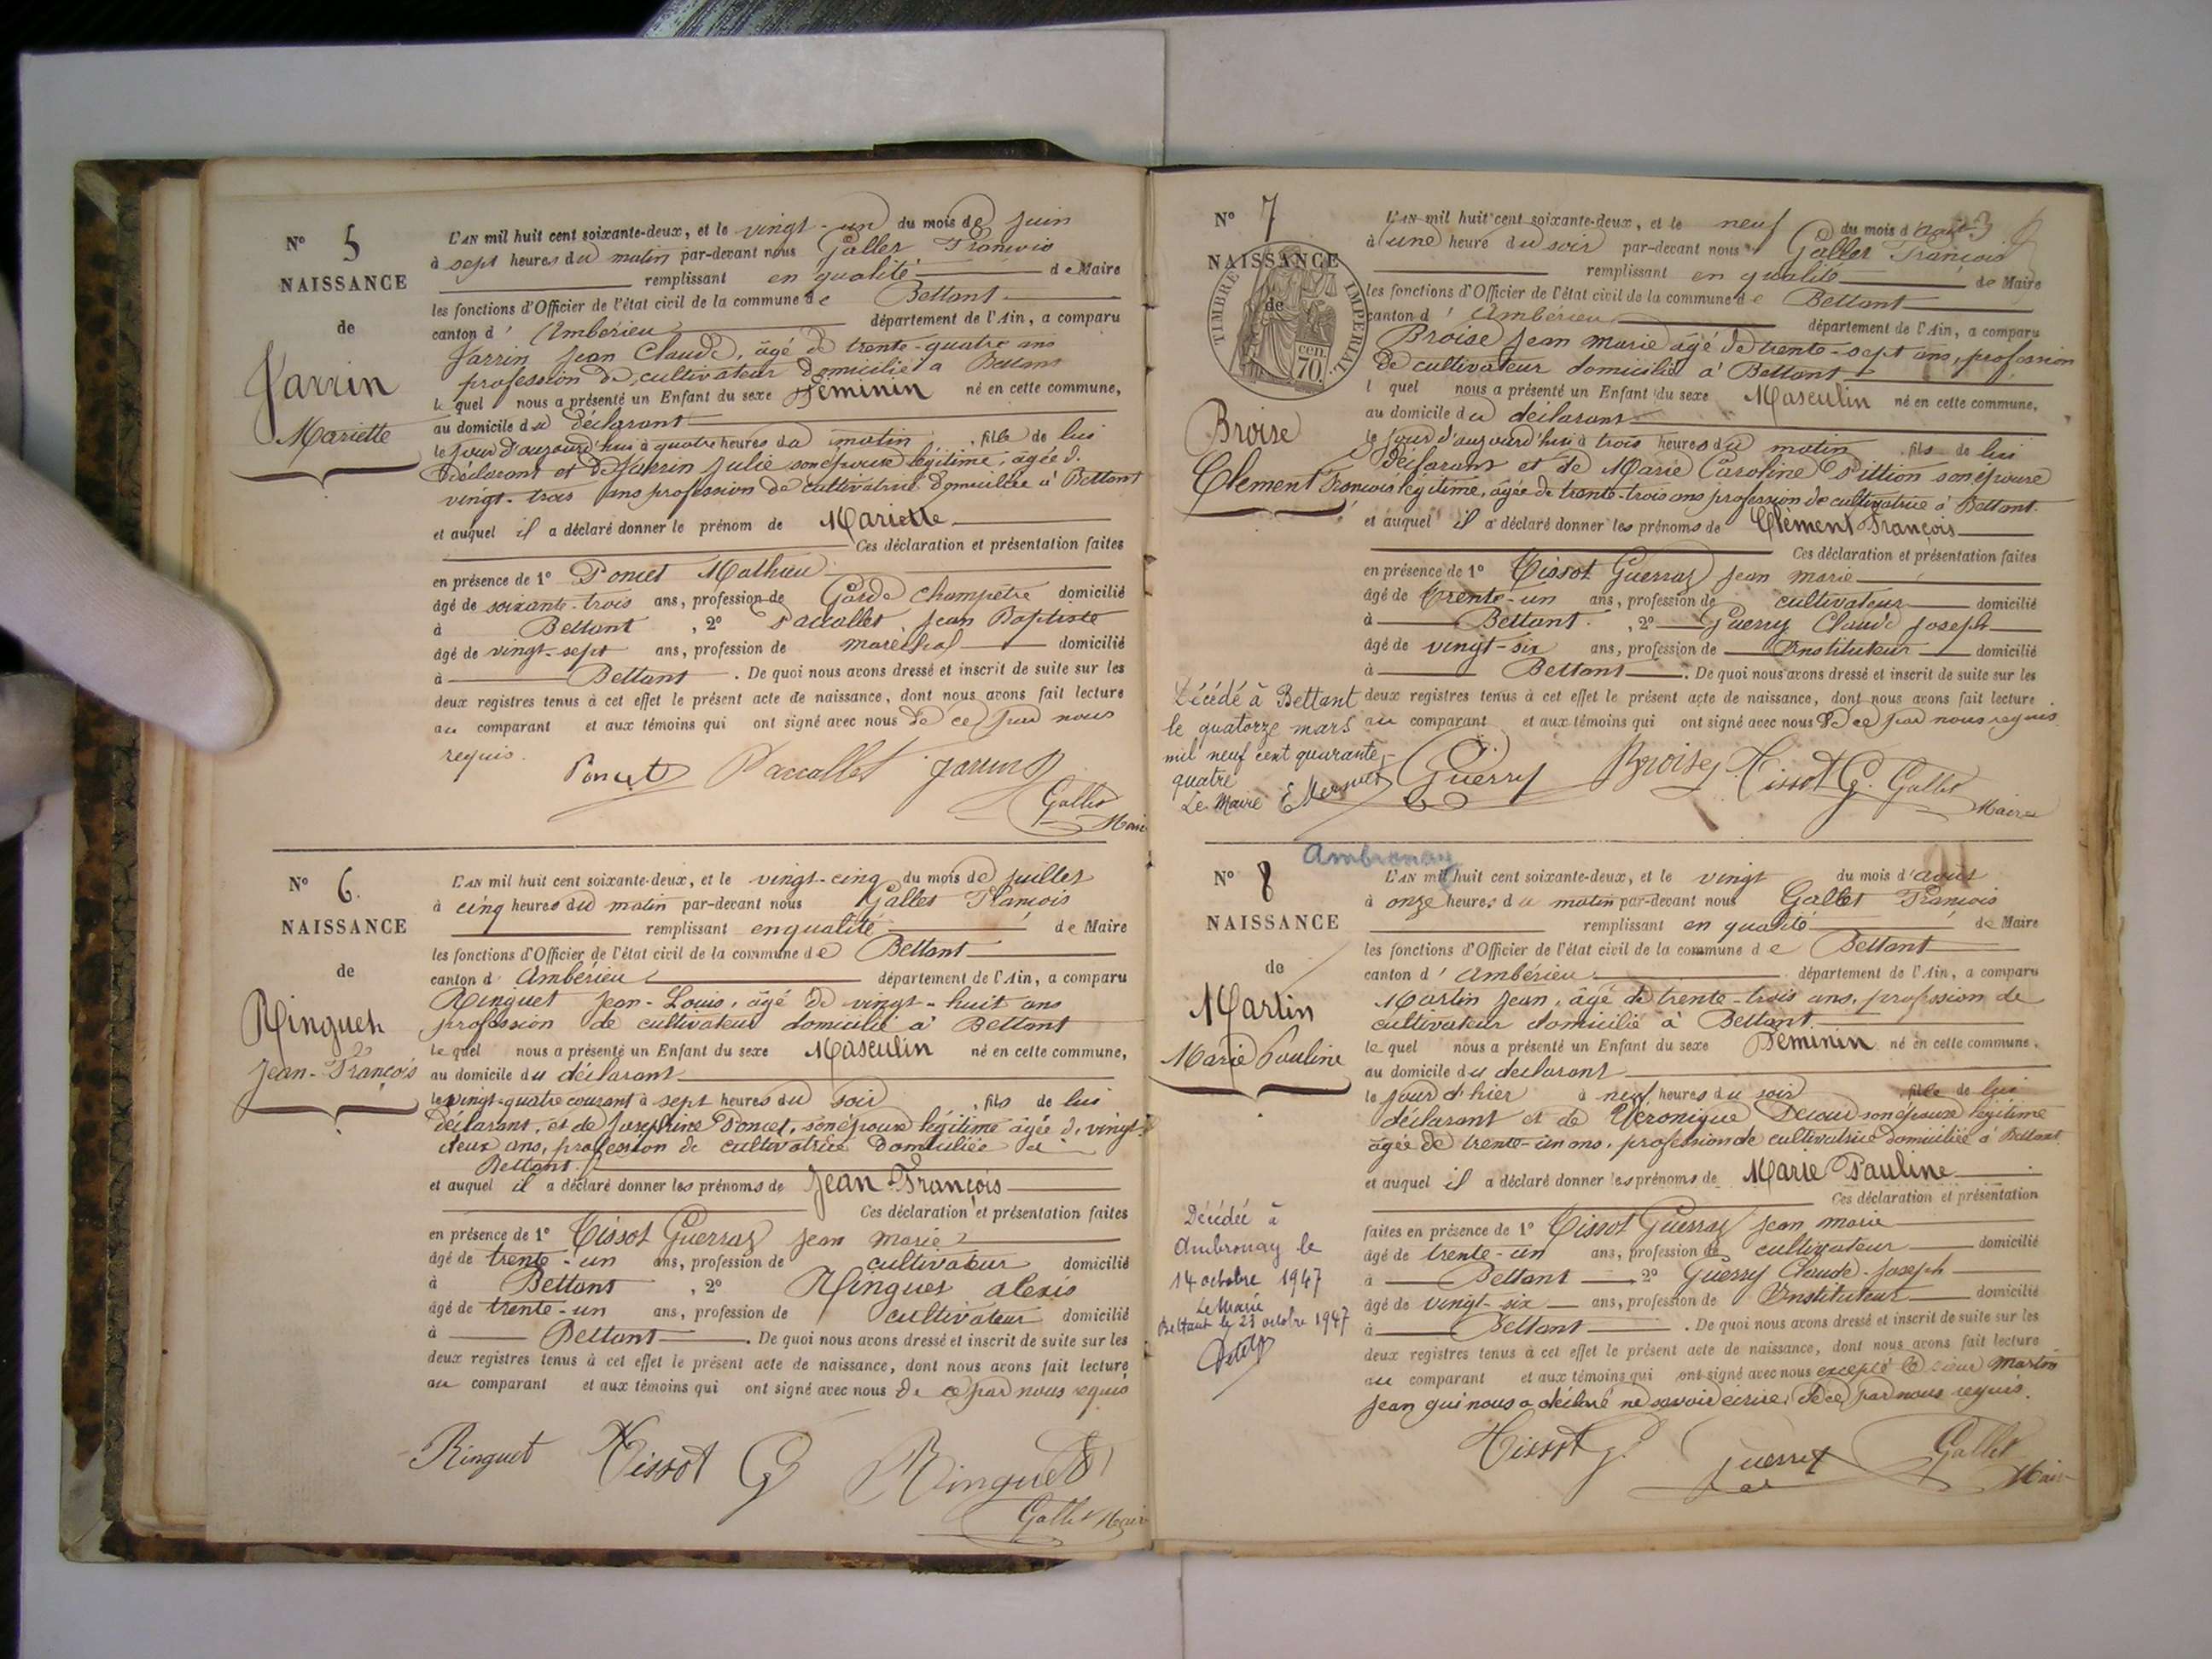 N° 5
NAISSANCE
de
Jarrin
Mariette
L'AN mil huit cent soixante-deux, et le vingt-un du mois de juin
à sept heures du matin par-devant nous Gallet François
remplissant en qualité de Maire
les fonctions d'Officier de l'état civil de la commune de Bettant
canton d'Ambérieu département de l'Ain, a comparu
Jarrin Jean Claude, âgé de trente-quatre ans
profession de cultivateur domicilié à Bettant
lequel nous a présenté un Enfant du sexe Féminin né en cette commune,
au domicile du déclarant
le jour d'aujourd'hui à quatre heures du matin, fille de lui
déclarant et de Julie son épouse légitime, âgée de
vingt-trois ans profession de cultivatrice domiciliée à Bettant
et auquel il a déclaré donner le prénom de Mariette
Ces déclaration et présentation faites
en présence de 1° Poncet Mathieu
âgé de soixante-trois ans, profession de Garde champêtre domicilié
à Bettant, 2° Paccallet Jean Baptiste
âgé de vingt-sept ans, profession de maréchal domicilié
à Bettant. De quoi nous avons dressé et inscrit de suite sur les
deux registres tenus à cet effet le présent acte de naissance, dont nous avons fait lecture
au comparant et aux témoins qui ont signé avec nous de ce par nous
requis.
Poncet Paccallet Jarrin
Gallet
Maire
N° 6.
NAISSANCE
de
Ringuet
Jean-François
L'AN mil huit cent soixante-deux, et le vingt-cinq du mois de juillet
à cinq heures du matin par-devant nous Gallet François
remplissant en qualité de Maire
les fonctions d'Officier de l'état civil de la commune de Bettant
canton d'Ambérieu département de l'Ain, a comparu
Ringuet Jean-Louis, âgé de vingt-huit ans
profession de cultivateur domicilié à Bettant
lequel nous a présenté un Enfant du sexe Masculin né en cette commune,
au domicile du déclarant
le vingt-quatre courant à sept heures du soir, fils de lui
déclarant, et de Joséphine Poncet, son épouse légitime âgée de vingt-
deux ans, profession de cultivatrice domiciliée à
Bettant.
et auquel il a déclaré donner les prénoms de Jean-François
Ces déclaration et présentation faites
en présence de 1° Tissot Guerraz Jean marie
âgé de trente-un ans, profession de cultivateur domicilié
à Bettant, 2° Ringuet alexis
âgé de trente-un ans, profession de cultivateur domicilié
à Bettant. De quoi nous avons dressé et inscrit de suite sur les
deux registres tenus à cet effet le présent acte de naissance, dont nous avons fait lecture
au comparant et aux témoins qui ont signé avec nous de ce par nous requis
Ringuet Tissot G Ringuet
Gallet Maire
N° 7
NAISSANCE
de
TIMBRE IMPÉRIAL
cen.
70.
Broise
Clement François
L'AN mil huit cent soixante-deux, et le neuf du mois d'août
à une heure du soir par-devant nous Gallet François
remplissant en qualité de Maire
les fonctions d'Officier de l'état civil de la commune de Bettant
canton d'Ambérieu département de l'Ain, a comparu
Broise Jean marie âgé de trente-sept ans, profession
de cultivateur domicilié à Bettant
lequel nous a présenté un Enfant du sexe Masculin né en cette commune,
au domicile du déclarant
le jour d'aujourd'hui à trois heures du matin, fils de lui
déclarant et de Marie Caroline Pittion son épouse
légitime, âgée de trente-trois ans profession de cultivatrice à Bettant.
et auquel il a déclaré donner les prénoms de Clément François
Ces déclaration et présentation faites
en présence de 1° Tissot Guerraz Jean marie
âgé de trente-un ans, profession de cultivateur domicilié
à Bettant, 2° Guerry Claude Joseph
âgé de vingt-six ans, profession de Instituteur domicilié
à Bettant. De quoi nous avons dressé et inscrit de suite sur les
deux registres tenus à cet effet le présent acte de naissance, dont nous avons fait lecture
au comparant et aux témoins qui ont signé avec nous de ce par nous requis
Décédé à Bettant
le quatorze mars
mil neuf cent quarante-
quatre
Le Maire
Guerry Broise Tissot G. Gallet
Maire
Ambronay
N° 8
NAISSANCE
de
Martin
Marie Pauline
L'AN mil huit cent soixante-deux, et le vingt du mois d'août
à onze heures du matin par-devant nous Gallet François
remplissant en qualité de Maire
les fonctions d'Officier de l'état civil de la commune de Bettant
canton d'Ambérieu département de l'Ain, a comparu
Martin Jean, âgé de trente-trois ans, profession de
cultivateur domicilié à Bettant.
lequel nous a présenté un Enfant du sexe Féminin né en cette commune,
au domicile du déclarant
le jour d'hier à neuf heures du soir, fille de lui
déclarant et de Véronique son épouse légitime
âgée de trente-un ans, profession de cultivatrice domiciliée à Bettant.
et auquel il a déclaré donner les prénoms de Marie Pauline
Ces déclaration et présentation
faites en présence de 1° Tissot Guerraz Jean marie
âgé de trente-un ans, profession de cultivateur domicilié
à Bettant, 2° Guerry Claude-Joseph
âgé de vingt-six ans, profession de Instituteur domicilié
à Bettant. De quoi nous avons dressé et inscrit de suite sur les
deux registres tenus à cet effet le présent acte de naissance, dont nous avons fait lecture
au comparant et aux témoins qui ont signé avec nous excepté le sieur Martin
Jean qui nous a déclaré ne savoir écrire, de ce par nous requis.
Décédée à
Ambronay le
14 octobre 1947
Le Maire
Bettant le 23 octobre 1947
Tissot G. Guerry Gallet
Maire